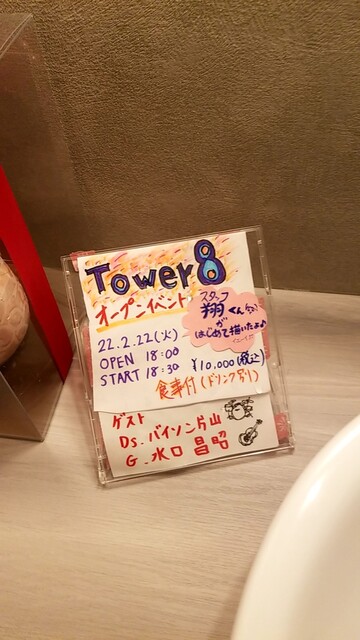 Tower 8
オープンイベント
スタッフ
翔くん
が
はじめて描いたよ♪
22.2.22(火)
OPEN 18:00
START 18:30
¥10,000(税込)
食事付(ドリンク別)
ゲスト
Ds. バイソン片山
G. 水口 昌昭